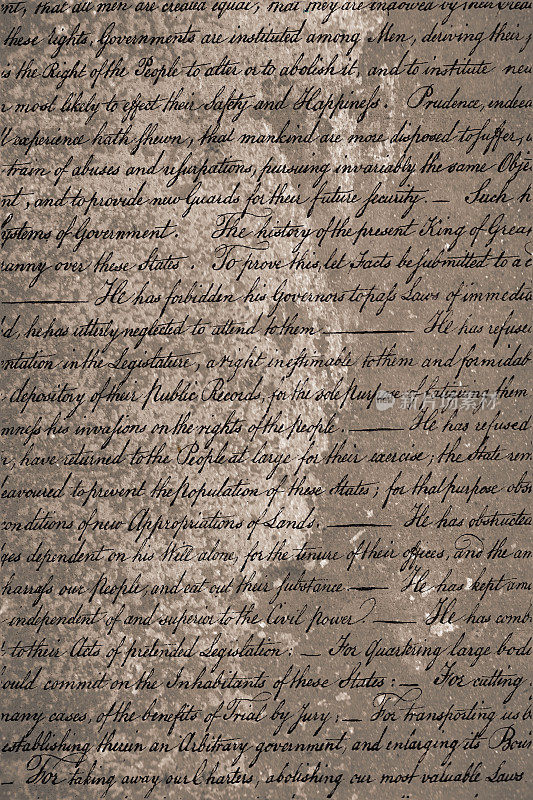 nt, that all men are created equal, that they are endowed by their Crea
these rights, Governments are instituted among Men, deriving their
is the Right of the People to alter or to abolish it, and to institute new
r most likely to effect their Safety and Happiness. Prudence, indeed
ll experience hath shewn, that mankind are more disposed to suffer, w
train of abuses and usurpations, pursuing invariably the same Obje
nt, and to provide new Guards for their future security. — Such h
ystems of Government. The history of the present King of Grea
ranny over these States. To prove this, let Facts be submitted to a c
—— He has forbidden his Governors to pass Laws of immedia
d, he has utterly neglected to attend to them —— He has refuse
entation in the Legislature, a right inestimable to them and formidab
depository of their Public Records, for the sole purpose of fatiguing them
mness his invasions on the rights of the people. —— He has refused
r; have returned to the People at large for their exercise; the State rem
eavoured to prevent the population of these States; for that purpose obs
onditions of new Appropriations of Lands. —— He has obstructe
ges dependent on his Will alone, for the tenure of their offices, and the am
harrass our People, and eat out their substance. —— He has kept amo
independent of and superior to the Civil power. —— He has comb
to their Acts of pretended Legislation: — For quartering large bodi
ould commit on the Inhabitants of these States: — For cutting
many cases, of the benefits of Trial by Jury: — For transporting us b
establishing therein an Arbitrary government, and enlarging its Boun
— For taking away our Charters, abolishing our most valuable Laws